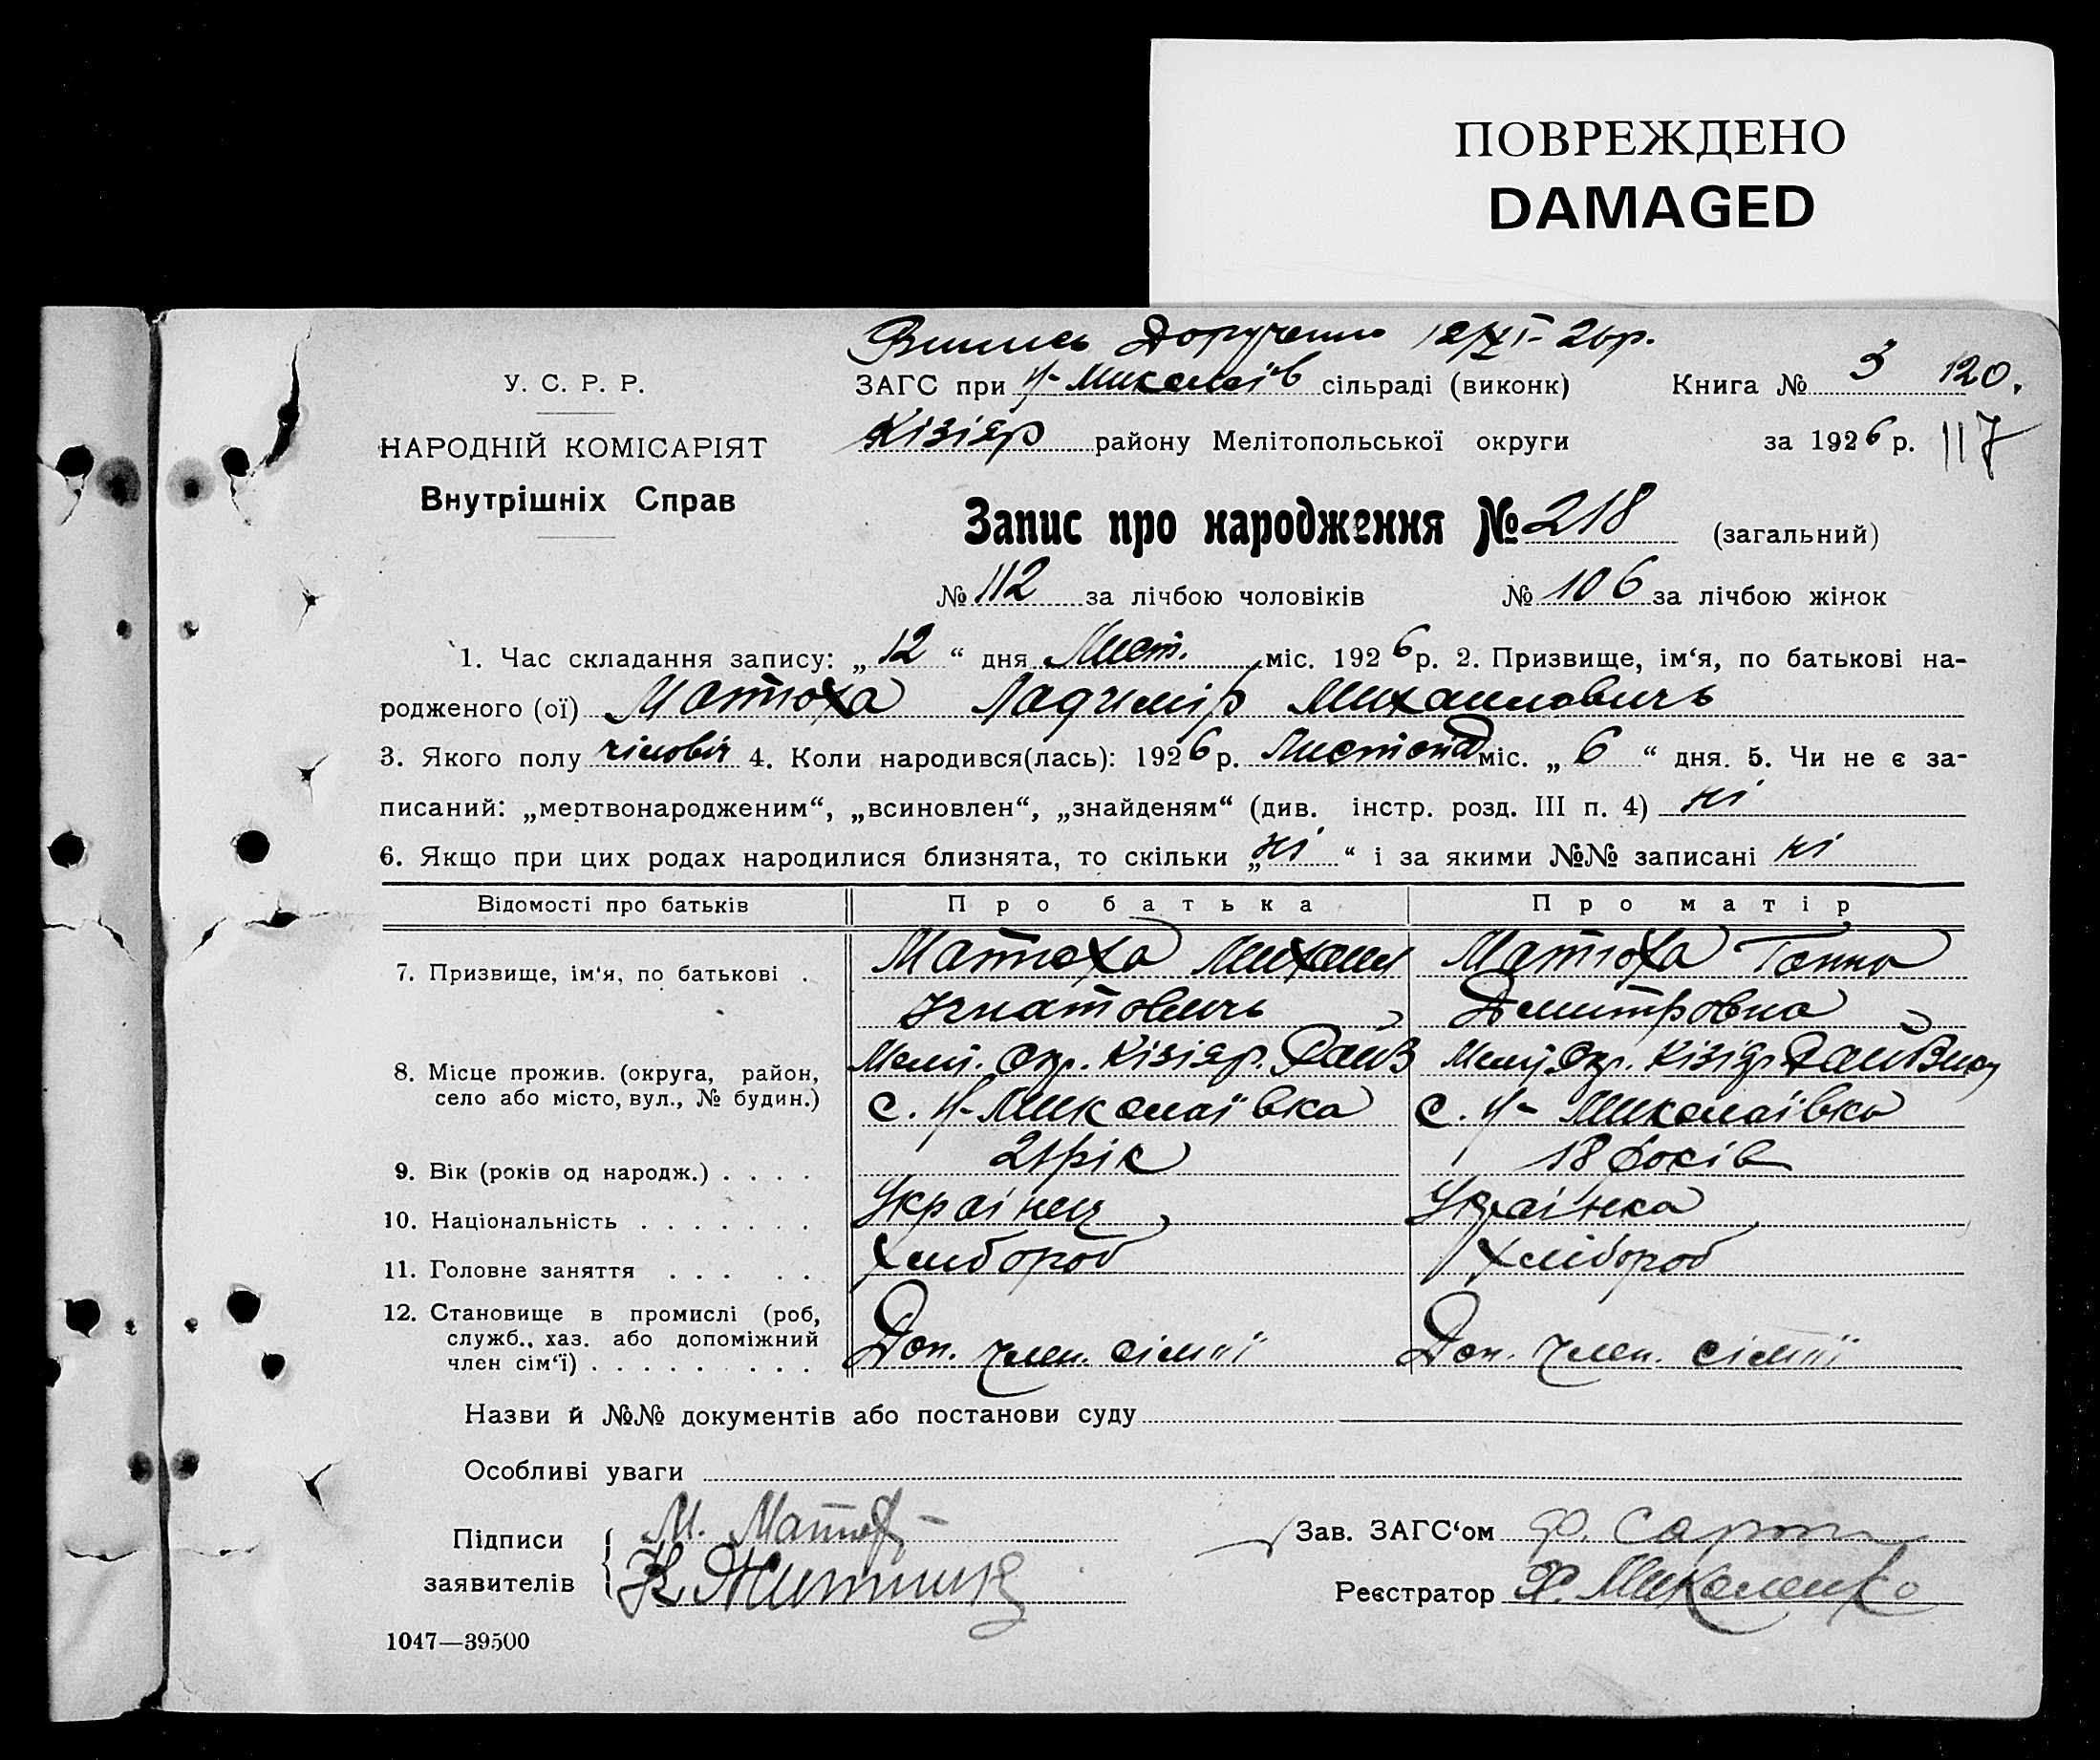 ПОВРЕЖДЕНО
DAMAGED
Випись Доручено 12/XI-26р.
У. С. Р. Р.
ЗАГС при Н-Миколаїв сільраді (виконк) Книга № 3 120.
НАРОДНІЙ КОМІСАРІЯТ
Кізіяр району Мелітопольської округи за 1926 р. 117
Внутрішніх Справ
Запис про народження № 218 (загальний)
№ 112 за лічбою чоловіків № 106 за лічбою жінок
1. Час складання запису: „12“ дня Лист. міс. 1926 р. 2. Призвище, ім‘я, по батькові на-
родженого (ої) Матюха Ладимір Михаиловичь
3. Якого полу чіловіч 4. Коли народився(лась): 1926 р. Листопад міс. „6“ дня. 5. Чи не є за-
писаний: „мертвонародженим“, „всиновлен“, „знайденям“ (див. інстр. розд. III п. 4) ні
6. Якщо при цих родах народилися близнята, то скільки „ні“ і за якими №№ записані ні
Відомості про батьків Про батька Про матір
7. Призвище, ім‘я, по батькові . Матюха Михаил Матюха Ганна
Игнатовичь Дмитровна
8. Місце прожив. (округа, район, Меліт. Окр. Кізіяр. Меліт. Окр. Кізіяр
село або місто, вул., № будин.) с. Н-Миколаївка с. Н-Миколаївка
9. Вік (років од народж.) . . . . 21 рік 18 років
10. Національність . . . . . . . Українец Українка
11. Головне заняття . . . . . Хлібороб Хлібороб
12. Становище в промислі (роб,
служб., хаз. або допоміжний
член сім‘ї) . . . . . . . . Доп. член. сімиї Доп. член. сімиї
Назви й №№ документів або постанови суду
Особливі уваги
Підписи М. Матюха Зав. ЗАГС‘ом
заявителів К. Житник Реєстратор Ф. Миколенко
1047—39500